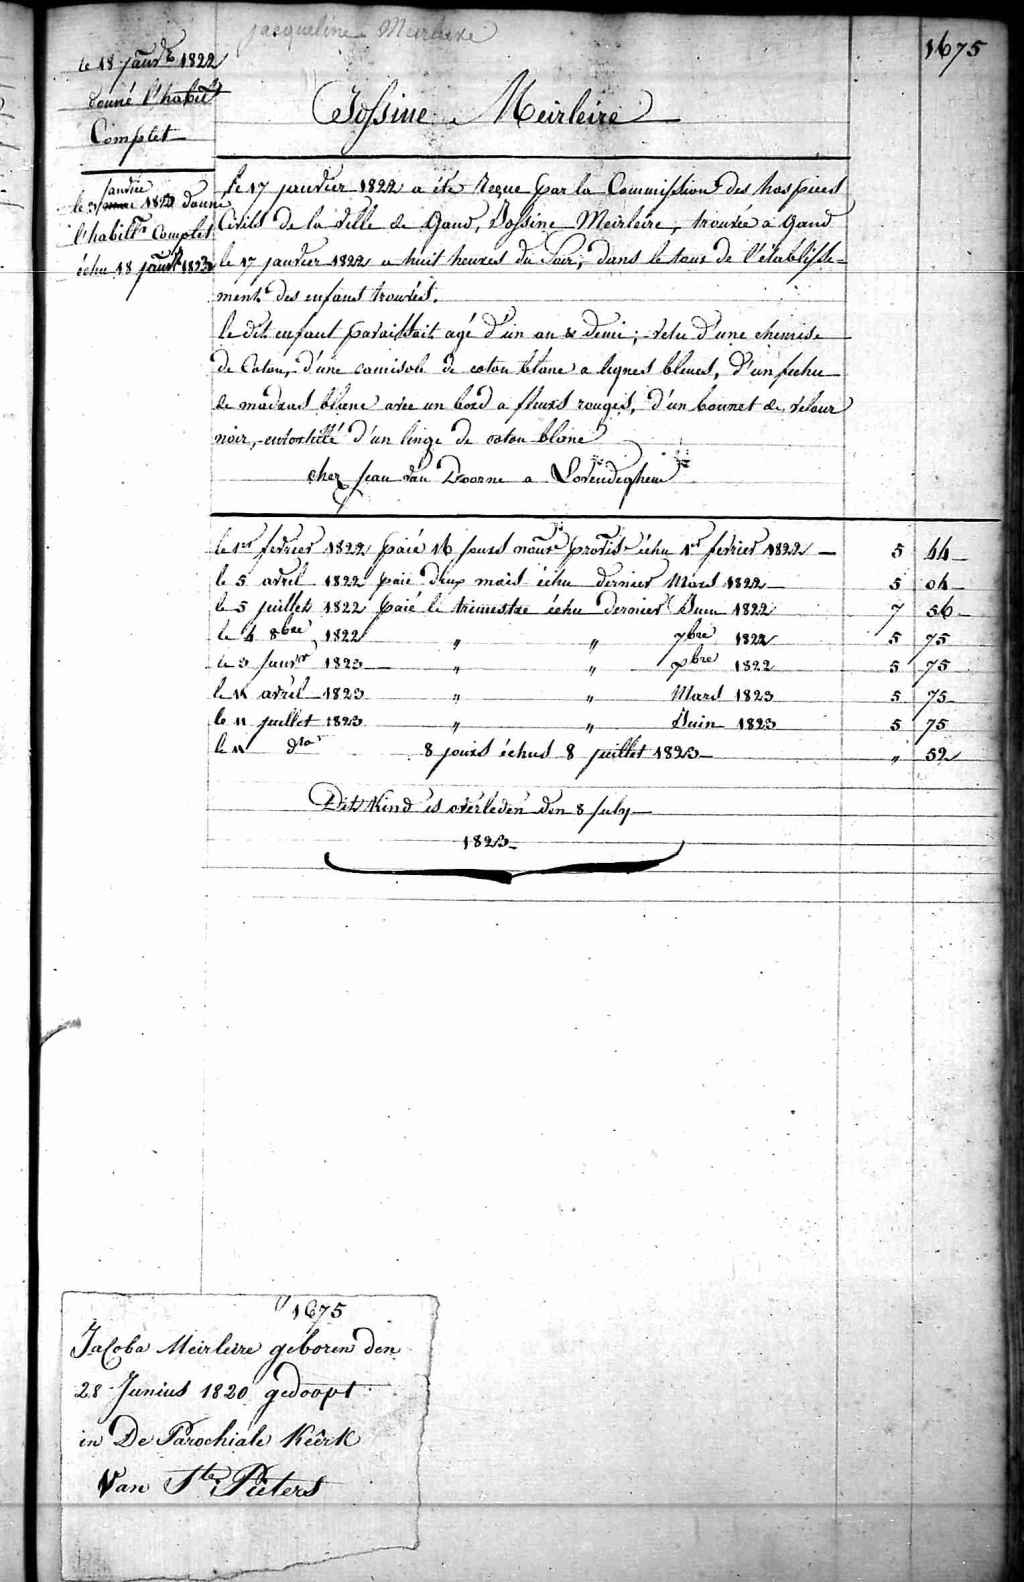 jacqueline Meirleire
1675
le 18 janvr 1822
donné l'habillt
Complet
Jossine Meirleire
janvier
le 31 mai 1823 donné
l'habillt Complet
échu 18 janvr 1823
Le 17 janvier 1822 a été Reçue par la Commission des hospices
Civils de la Ville de Gand, Jossine Meirleire, trouvée à Gand
le 17 janvier 1822 a huit heures du Soir, dans le tour de l'établisse-
ment des enfans trouvés.
le dit enfant paraissait agé d'un an & demi; vetu d'une chemise
de Coton, d'une camisole de coton blanc a lignes bleues, d'un fichu
de madras blanc avec un bord a fleurs rouges, d'un bonnet de velour
noir, entortillé d'un linge de coton blanc
chez Jean Van Doorne a Lovendeghem
le 1er fevrier 1822 paié 16 jours nourre provise échu 1er fevrier 1822 — 5 44
le 5 avril 1822 paié deux mois échu dernier Mars 1822 5 04
le 5 juillet 1822 paié le trimestre échu dernier Juin 1822 7 56
le 4 8bre 1822 " " 7bre 1822 5 75
le 3 Janvr 1823 " " Xbre 1822 5 75
le 11 avril 1823 " " Mars 1823 5 75
le 11 juillet 1823 " " Juin 1823 5 75
le 11 dto 8 jours échus 8 juillet 1823 " 52
Dit Kind is overleden den 8 July
1823
1675
Jacoba Meirleire geboren den
28 Junius 1820 gedoopt
in De Parochiale Kerk
Van Ste Pieters